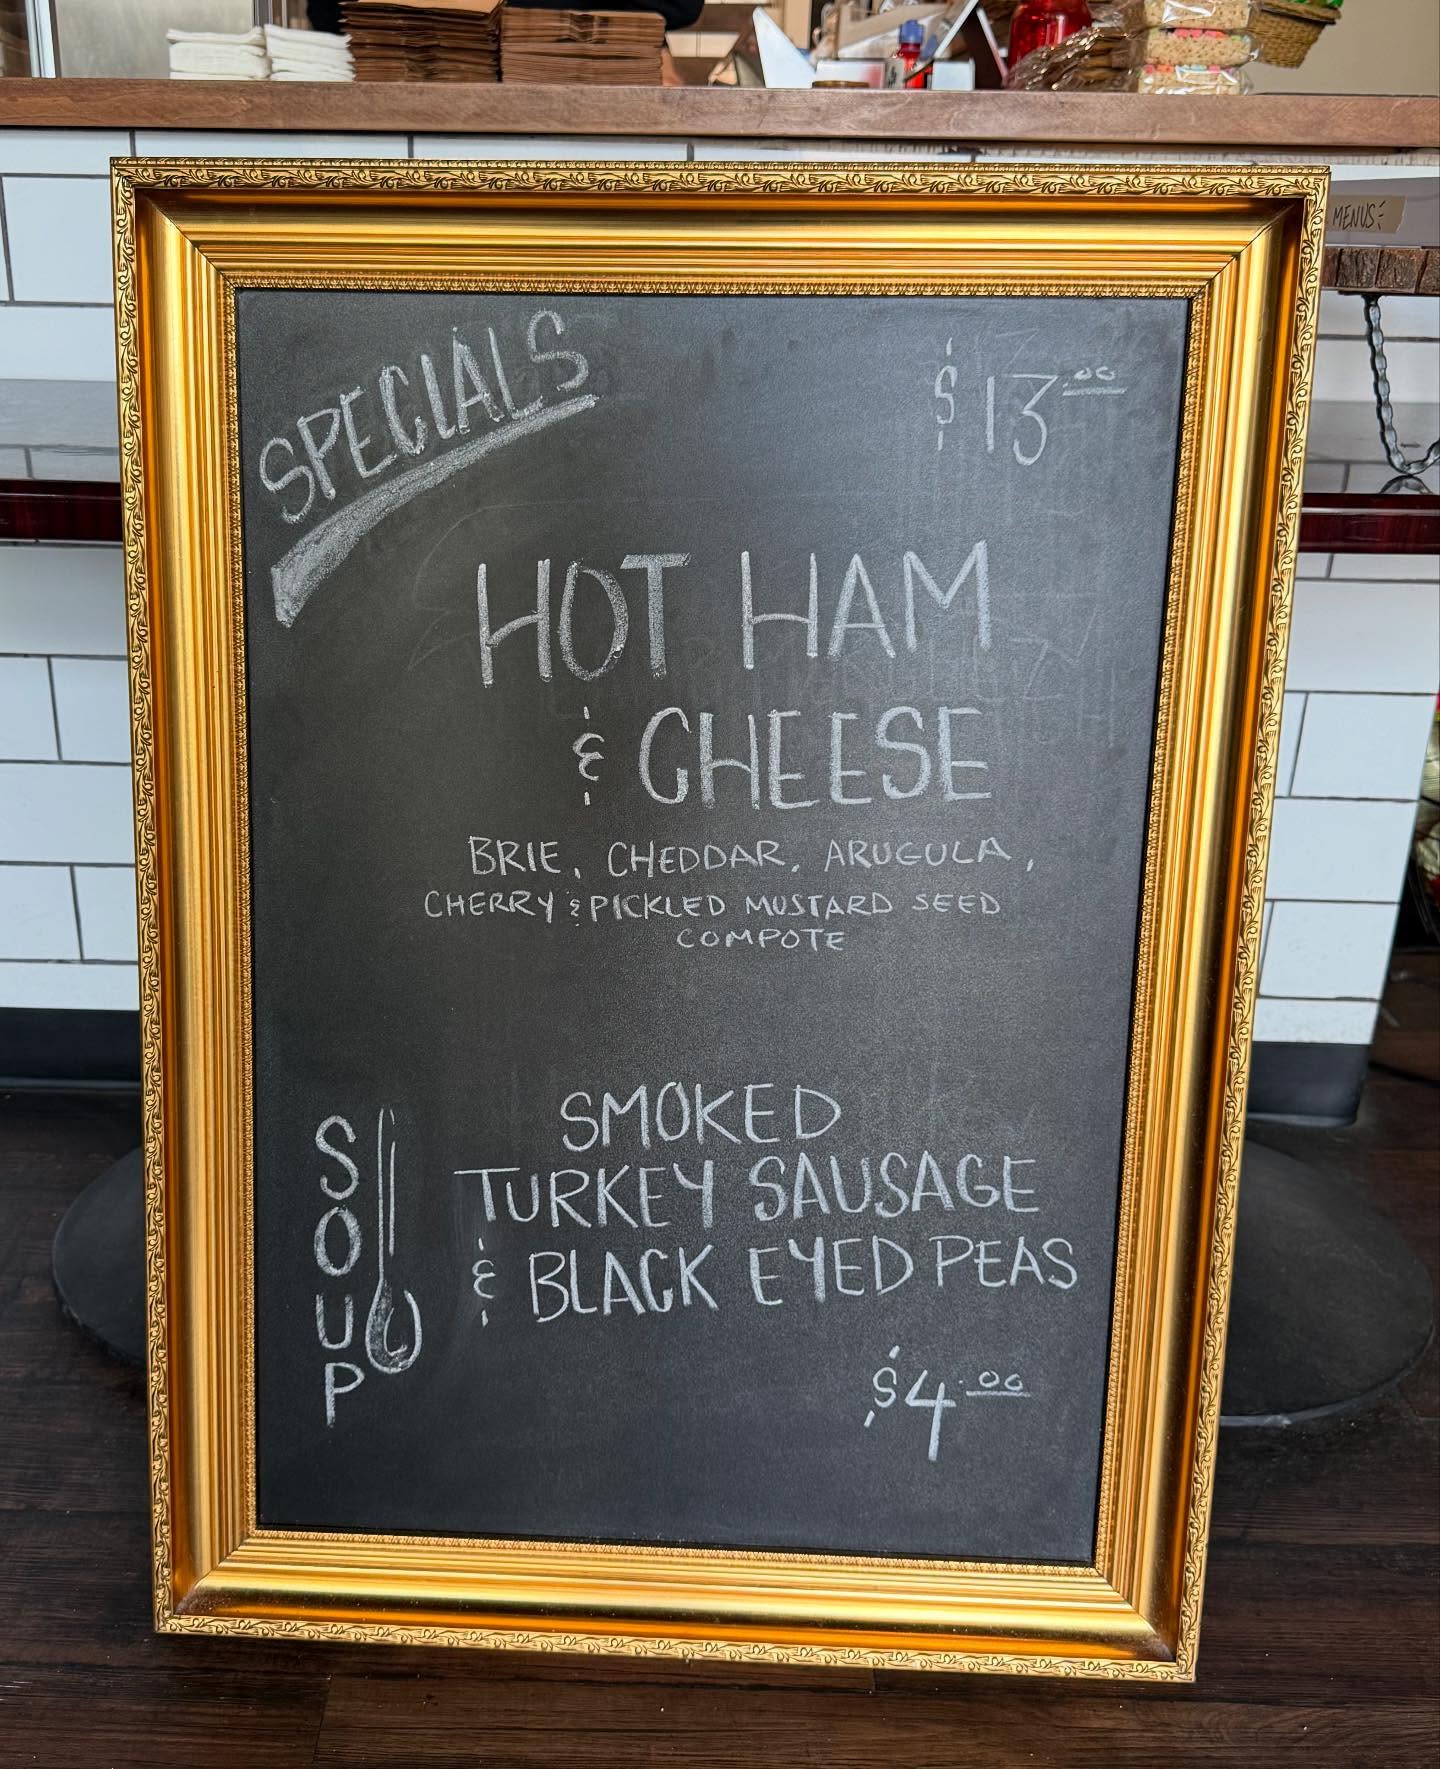 MENUS
SPECIALS
$13.00
HOT HAM
& CHEESE
BRIE, CHEDDAR, ARUGULA,
CHERRY & PICKLED MUSTARD SEED
COMPOTE
SOUP
SMOKED
TURKEY SAUSAGE
& BLACK EYED PEAS
$4.00